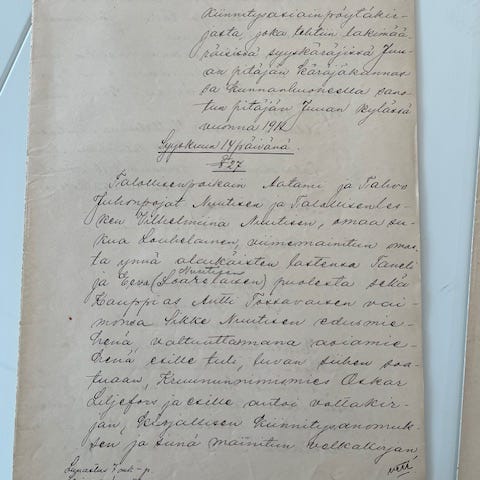 Kiinnitysasiainpöytäkir-
jasta joka tehtiin lakimää-
räisissä syyskäräjissä Juu-
an pitäjän käräjäkunnas-
sa kunnanhuoneella sano-
tun pitäjän Juuan kylässä
vuonna 1912
Syyskuun 14 päivänä.
§ 27
Talollisenpoikain Aatami ja Taavo
Juhonpojat Nuutisen ja Talollisenles-
ken Vilhelmiina Nuutisen, omaa su-
kua Louhelainen, viimemainitun omas-
ta ynnä alaikäisten lastensa Taneli
ja Eeva Nuutisen puolesta sekä
Kauppias Antti Tossavaisen vai-
monsa Sikke Nuutisen edusmie-
henä valtuuttamana asiamie-
henä esille tuli, luvan siihen saa-
tuaan, Kruununnimismies Oskar
Liljefors ja esille antoi valtakir-
jan, kirjallisen kiinnitysanomuk-
sen ja siinä mainitun velkakirjan,
Lunastus 7 mk - p.